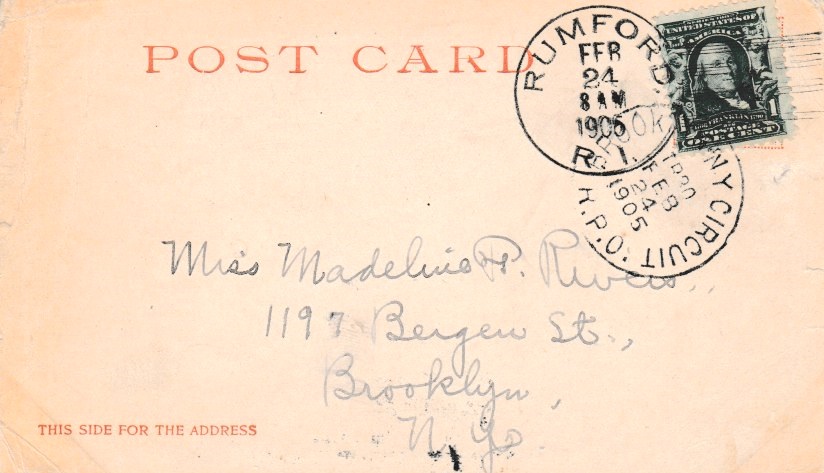 POST CARD
RUMFORD.
FEB
24
8 AM
1905
R.I.
SERIES 1902
UNITED STATES OF
AMERICA
FRANKLIN
1 1
POSTAGE
ONE CENT
N Y CIRCUIT. R.P.O.
TR 20
FEB
24
1905
Miss Madeline P. Rivers.,
1197 Bergen St.,
Brooklyn,
N. Yo.
THIS SIDE FOR THE ADDRESS